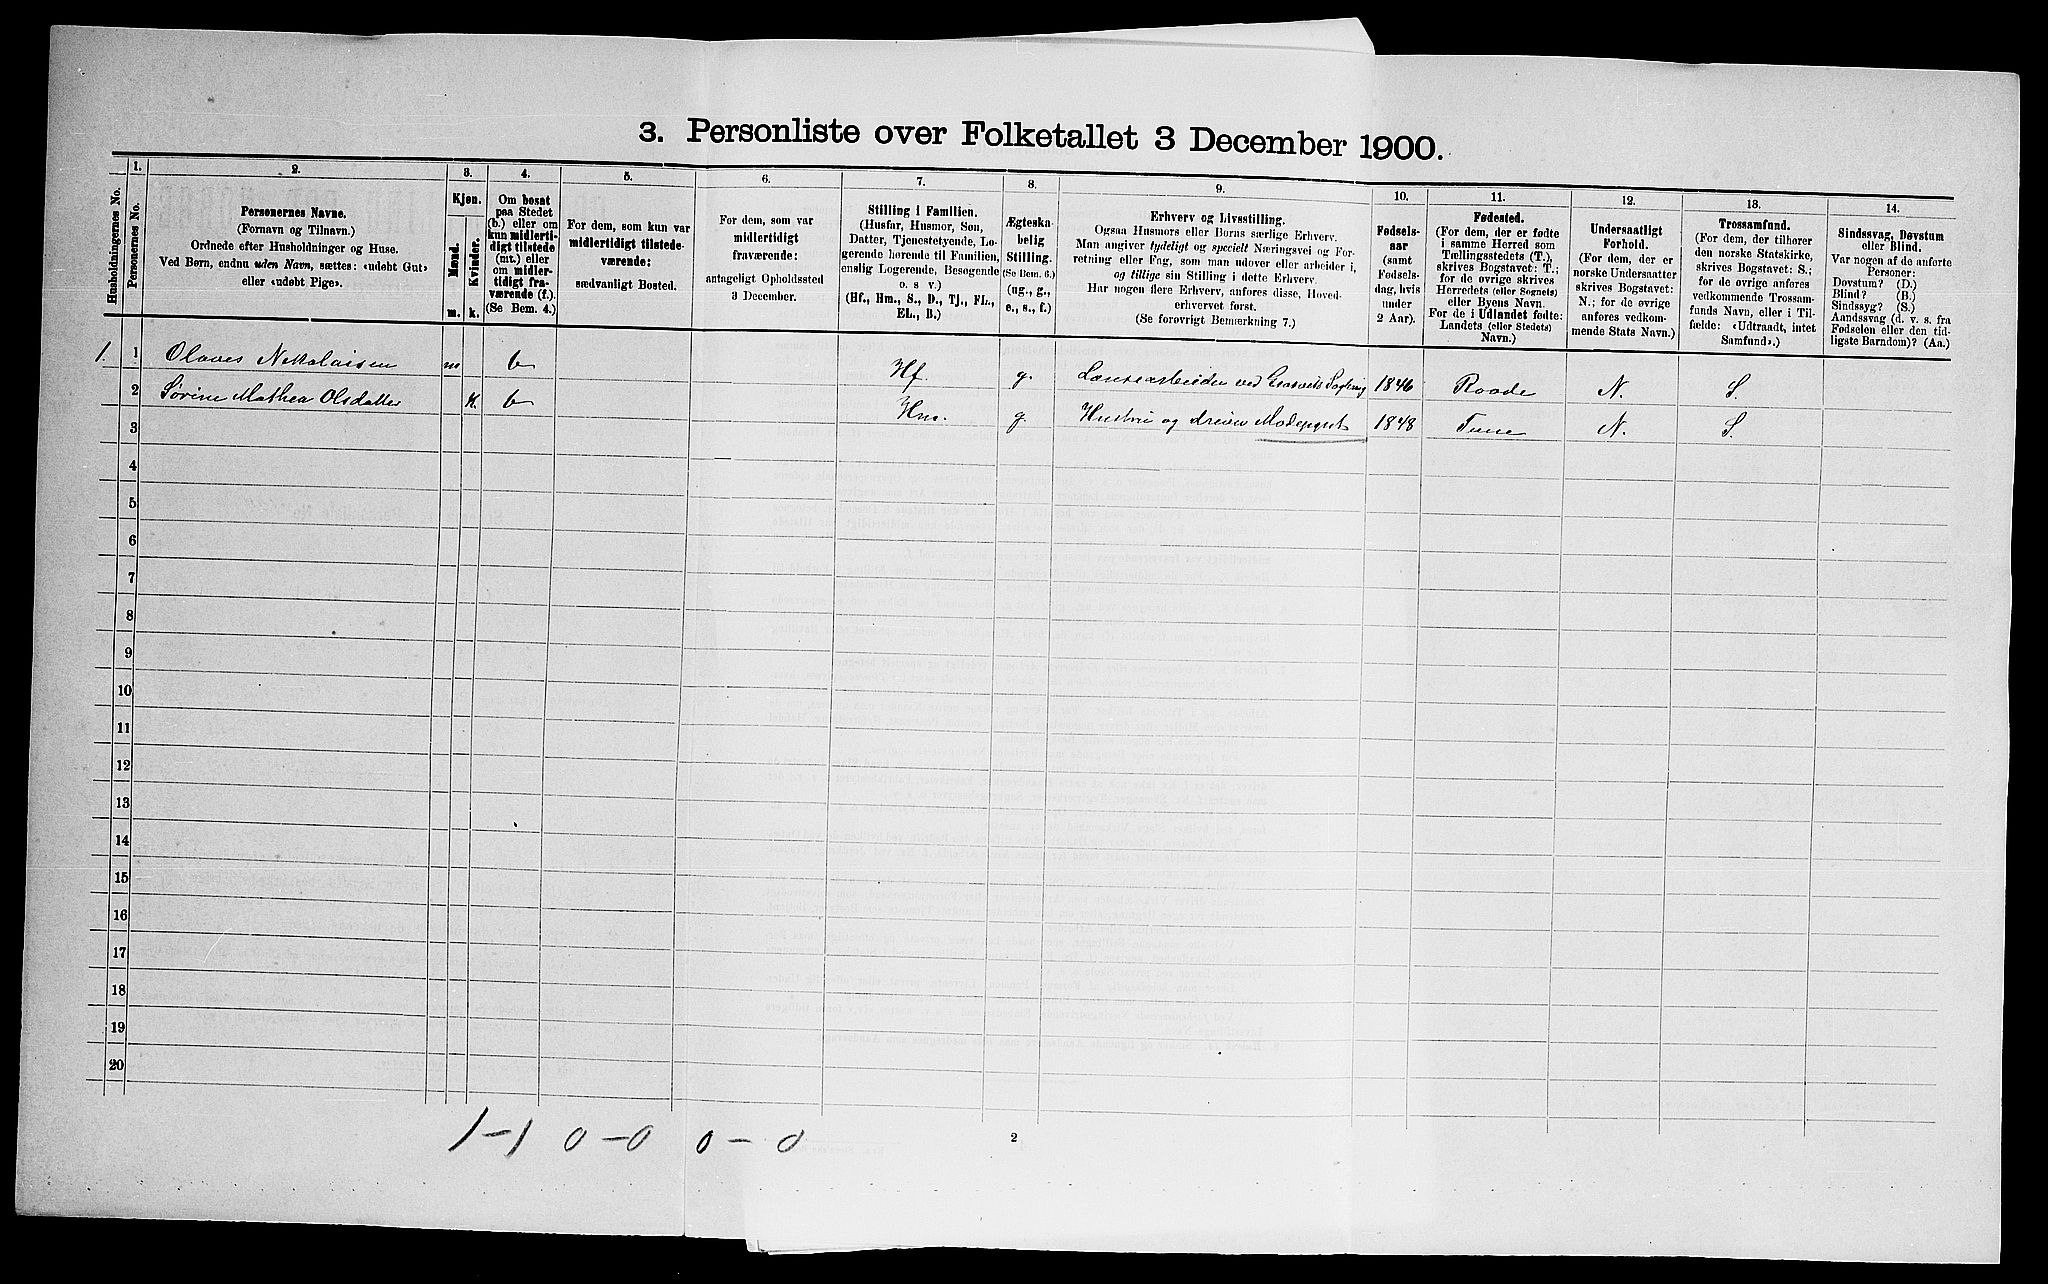 3. Personliste over Folketallet 3 December 1900.
Husholdningernes No.
1.
Personernes No.
2.
Personernes Navne.
(Fornavn og Tilnavn.)
Ordnede efter Husholdninger og Huse.
Ved Børn, endnu uden Navn, sættes: «udøbt Gut»
eller «udøbt Pige».
3.
Kjøn.
Mænd.
Kvinder.
m.
k.
4.
Om bosat
paa Stedet
(b.) eller om
kun midlerti-
digt tilstede
(mt.) eller
om midler-
tidigt fra-
værende (f.).
(Se Bem. 4.)
5.
For dem, som kun var
midlertidigt tilstede-
værende:
sædvanligt Bosted.
6.
For dem, som var
midlertidigt
fraværende:
antageligt Opholdssted
3 December.
7.
Stilling i Familien.
(Husfar, Husmor, Søn,
Datter, Tjenestetyende, Lo-
gerende hørende til Familien,
enslig Logerende, Besøgende
o. s v.)
(Hf., Hm., S., D., Tj., FL.,
EL., B.)
8.
Ægteska-
belig
Stilling.
(Se Bem. 6.)
(ug., g.,
e., s., f.)
9.
Erhverv og Livsstilling.
Ogsaa Husmors eller Børns særlige Erhverv.
Man angiver tydeligt og specielt Næringsvei og For-
retning eller Fag, som man udøver eller arbeider i,
og tillige sin Stilling i dette Erhverv.
Har nogen flere Erhverv, anføres disse, Hoved-
erhvervet først.
(Se forøvrigt Bemærkning 7.)
10.
Fødsels-
aar
(samt
Fødsels-
dag, hvis
under
2 Aar).
11.
Fødested.
(For dem, der er fødte
i samme Herred som
Tællingsstedets (T.),
skrives Bogstavet: T.;
for de øvrige skrives
Herredets (eller Sognets)
eller Byens Navn.
For de i Udlandet fødte:
Landets (eller Stedets)
Navn.)
12.
Undersaatligt
Forhold.
(For dem, der er
norske Undersaatter
skrives Bogstavet:
N.; for de øvrige
anføres vedkom-
mende Stats Navn.)
13.
Trossamfund.
(For dem, der tilhører
den norske Statskirke,
skrives Bogstavet: S.;
for de øvrige anføres
vedkommende Trossam-
funds Navn, eller i Til-
fælde: «Udtraadt, intet
Samfund».)
14.
Sindssvag, Døvstum
eller Blind.
Var nogen af de anførte
Personer:
Døvstum? (D.)
Blind? (B.)
Sindssyg? (S.)
Aandssvag (d. v. s. fra
Fødselen eller den tid-
ligste Barndom)? (Aa.)
1. 1 Olaves Nikolaisen m b Hf. g. ved 1846 Raade N. S.
2 Sørine Mathea Olsdatter K. b Hm. g. Hustru og driver 1848 Tune N. S.
3
4
5
6
7
8
9
10
11
12
13
14
15
16
17
18
19
20
1-1 0-0 0-0
2